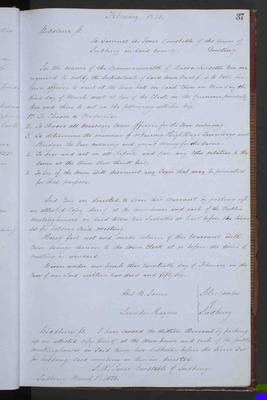 February 1856.
37
Middlesex ss.
To Samuel A. Jones Constable of the town of
Sudbury in said County. Greeting
In the name of the Commonwealth of Massachusetts You are
required to notify the Inhabitants of said town
town officers to meet at the Town hall in said Town on Monday the
third day of March next at ten of the Clock in the forenoon,
then and there to act on the following articles Viz.
1st To Choose a Moderator
2. To choose all necessary town officers for the Town ensuing
3. To determine the manner of repairing Highways Townways and
Bridges the Town ensuing and grant money for the same.
4. To hear and act on all Reports and pass any Votes relative to the
same as the Town then think best.
5. To see if the town will
for that purpose.
And You are directed to serve this Warrant by posting up
an attested Copy thereof at the Town house and each of the Public
Meetinghouses in said Town two Sabbaths at least before the time
set for holding said meeting.
Hereof fail not and make return of this Warrant with
Your doings thereon to the Town Clerk at or before the time of
meeting as aforesaid.
Given under our hands this twentieth day of February in the
Year of our Lord eighteen hundred and fifty six.
Abel B. Jones
Selectmen
of
Sudbury
Middlesex ss. I have served the within Warrant by posting
up an attested copy thereof at the Town house and each of the public
meetinghouses in said Town two Sabbaths before the time set
for holding said meeting as therein directed.
S. A. Jones Constable of Sudbury
Sudbury March 1st 1856.